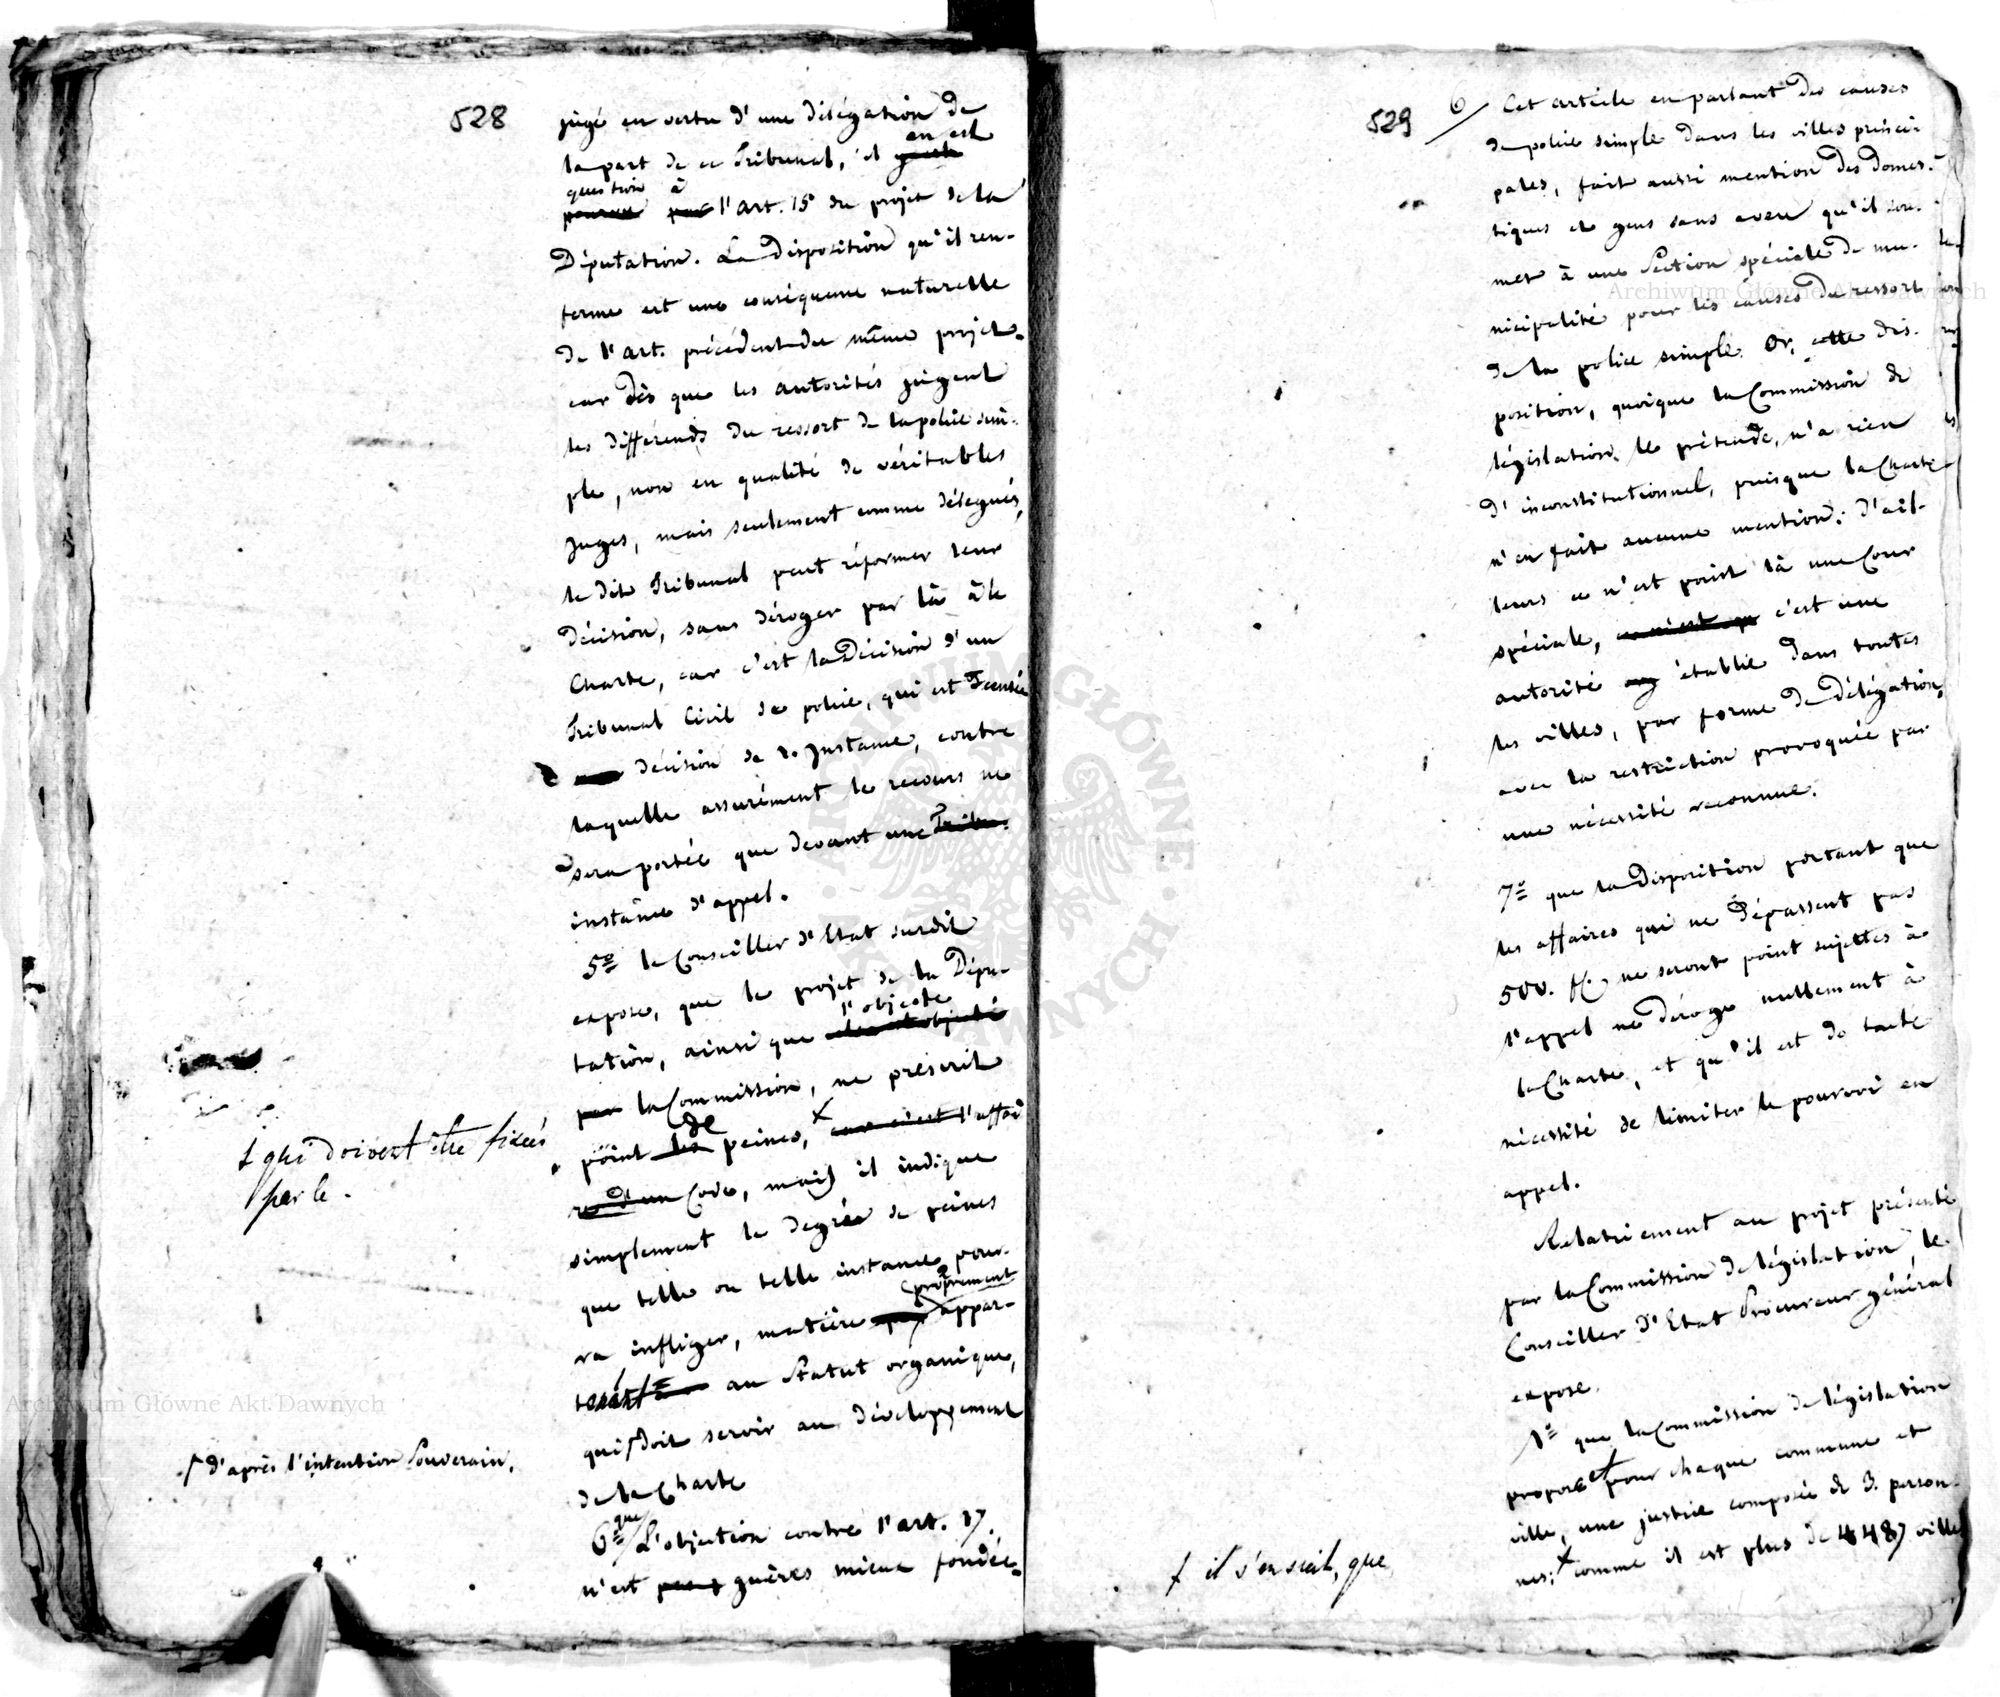 528
jugé en vertu d'une délégation de
la part de ce Tribunal, il en est
question à l'art. 15 du projet de la
Députation. La disposition qu'il ren-
ferme est une conséquence naturelle
de l'art. précédent du même projet.
car dès que les autorités jugent
les différends du ressort de la police sim-
ple, non en qualité de véritables
juges, mais seulement comme délegués,
le dit Tribunal peut réformer leur
décision, sans déroger par là à la
Charte, car c'est la Décision d'un
Tribunal Civil de police, qui est censée
décision de 1. Instance, contre
laquelle assurément le recours ne
sera portée que devant une
instance d'appel.
5º le Conseiller d'Etat susdit
expose, que le projet de la Dépu-
tation, ainsi que l'objecte
la Commission, ne préscrit
point de peines, + car c'est l'affai
re d'un Code, mais il indique
simplement le degrés de peines
que telle ou telle instance pour-
ra infliger, matière proprement appar-
tenant au Statut organique,
qui doit servir au développement
de la Charte
6º que L'objection contre l'art. 17.
n'est guères mieux fondée.
+ qui doivent être fixées
par le.
d'après l'intention Souverain,
529
6 Cet article en parlant des causes
de police simple dans les villes princi-
pales, fait aussi mention des domes-
tiques et gens sans aveu qu'il sou-
met à une Section spéciale de mu-
nicipalité pour les causes du ressort
de la police simple. Or, cette dis-
position, quoique la Commission de
législation le prétende, n'a rien
d'inconstitutionnel, puisque la Charte
n'en fait aucune mention; d'ail-
leurs ce n'est point là une Cour
spéciale, c'est une
autorité établie dans toutes
les villes, par forme de délégation,
avec la restriction provoquée par
une nécessité reconnue.
7º que la Disposition portant que
les affaires qui ne dépassent pas
500. fl. ne seront point sujettes à
l'appel ne déroge nullement à
la Charte, et qu'il est de toute
nécessité de limiter le pourvoi en
appel.
Relativement au projet présenté
par la Commission de législation, le
Conseiller d'Etat Procureur général
expose.
1º que la Commission de législation
propose pour chaque commune et
ville, une justice composée de 3. person-
nes; + comme il est plus de 4487 villes
+ il s'en suit, que
Archiwum Główne Akt Dawnych
Archiwum Główne Akt Dawnych
ARCHIWUM GŁÓWNE · AKT DAWNYCH ·